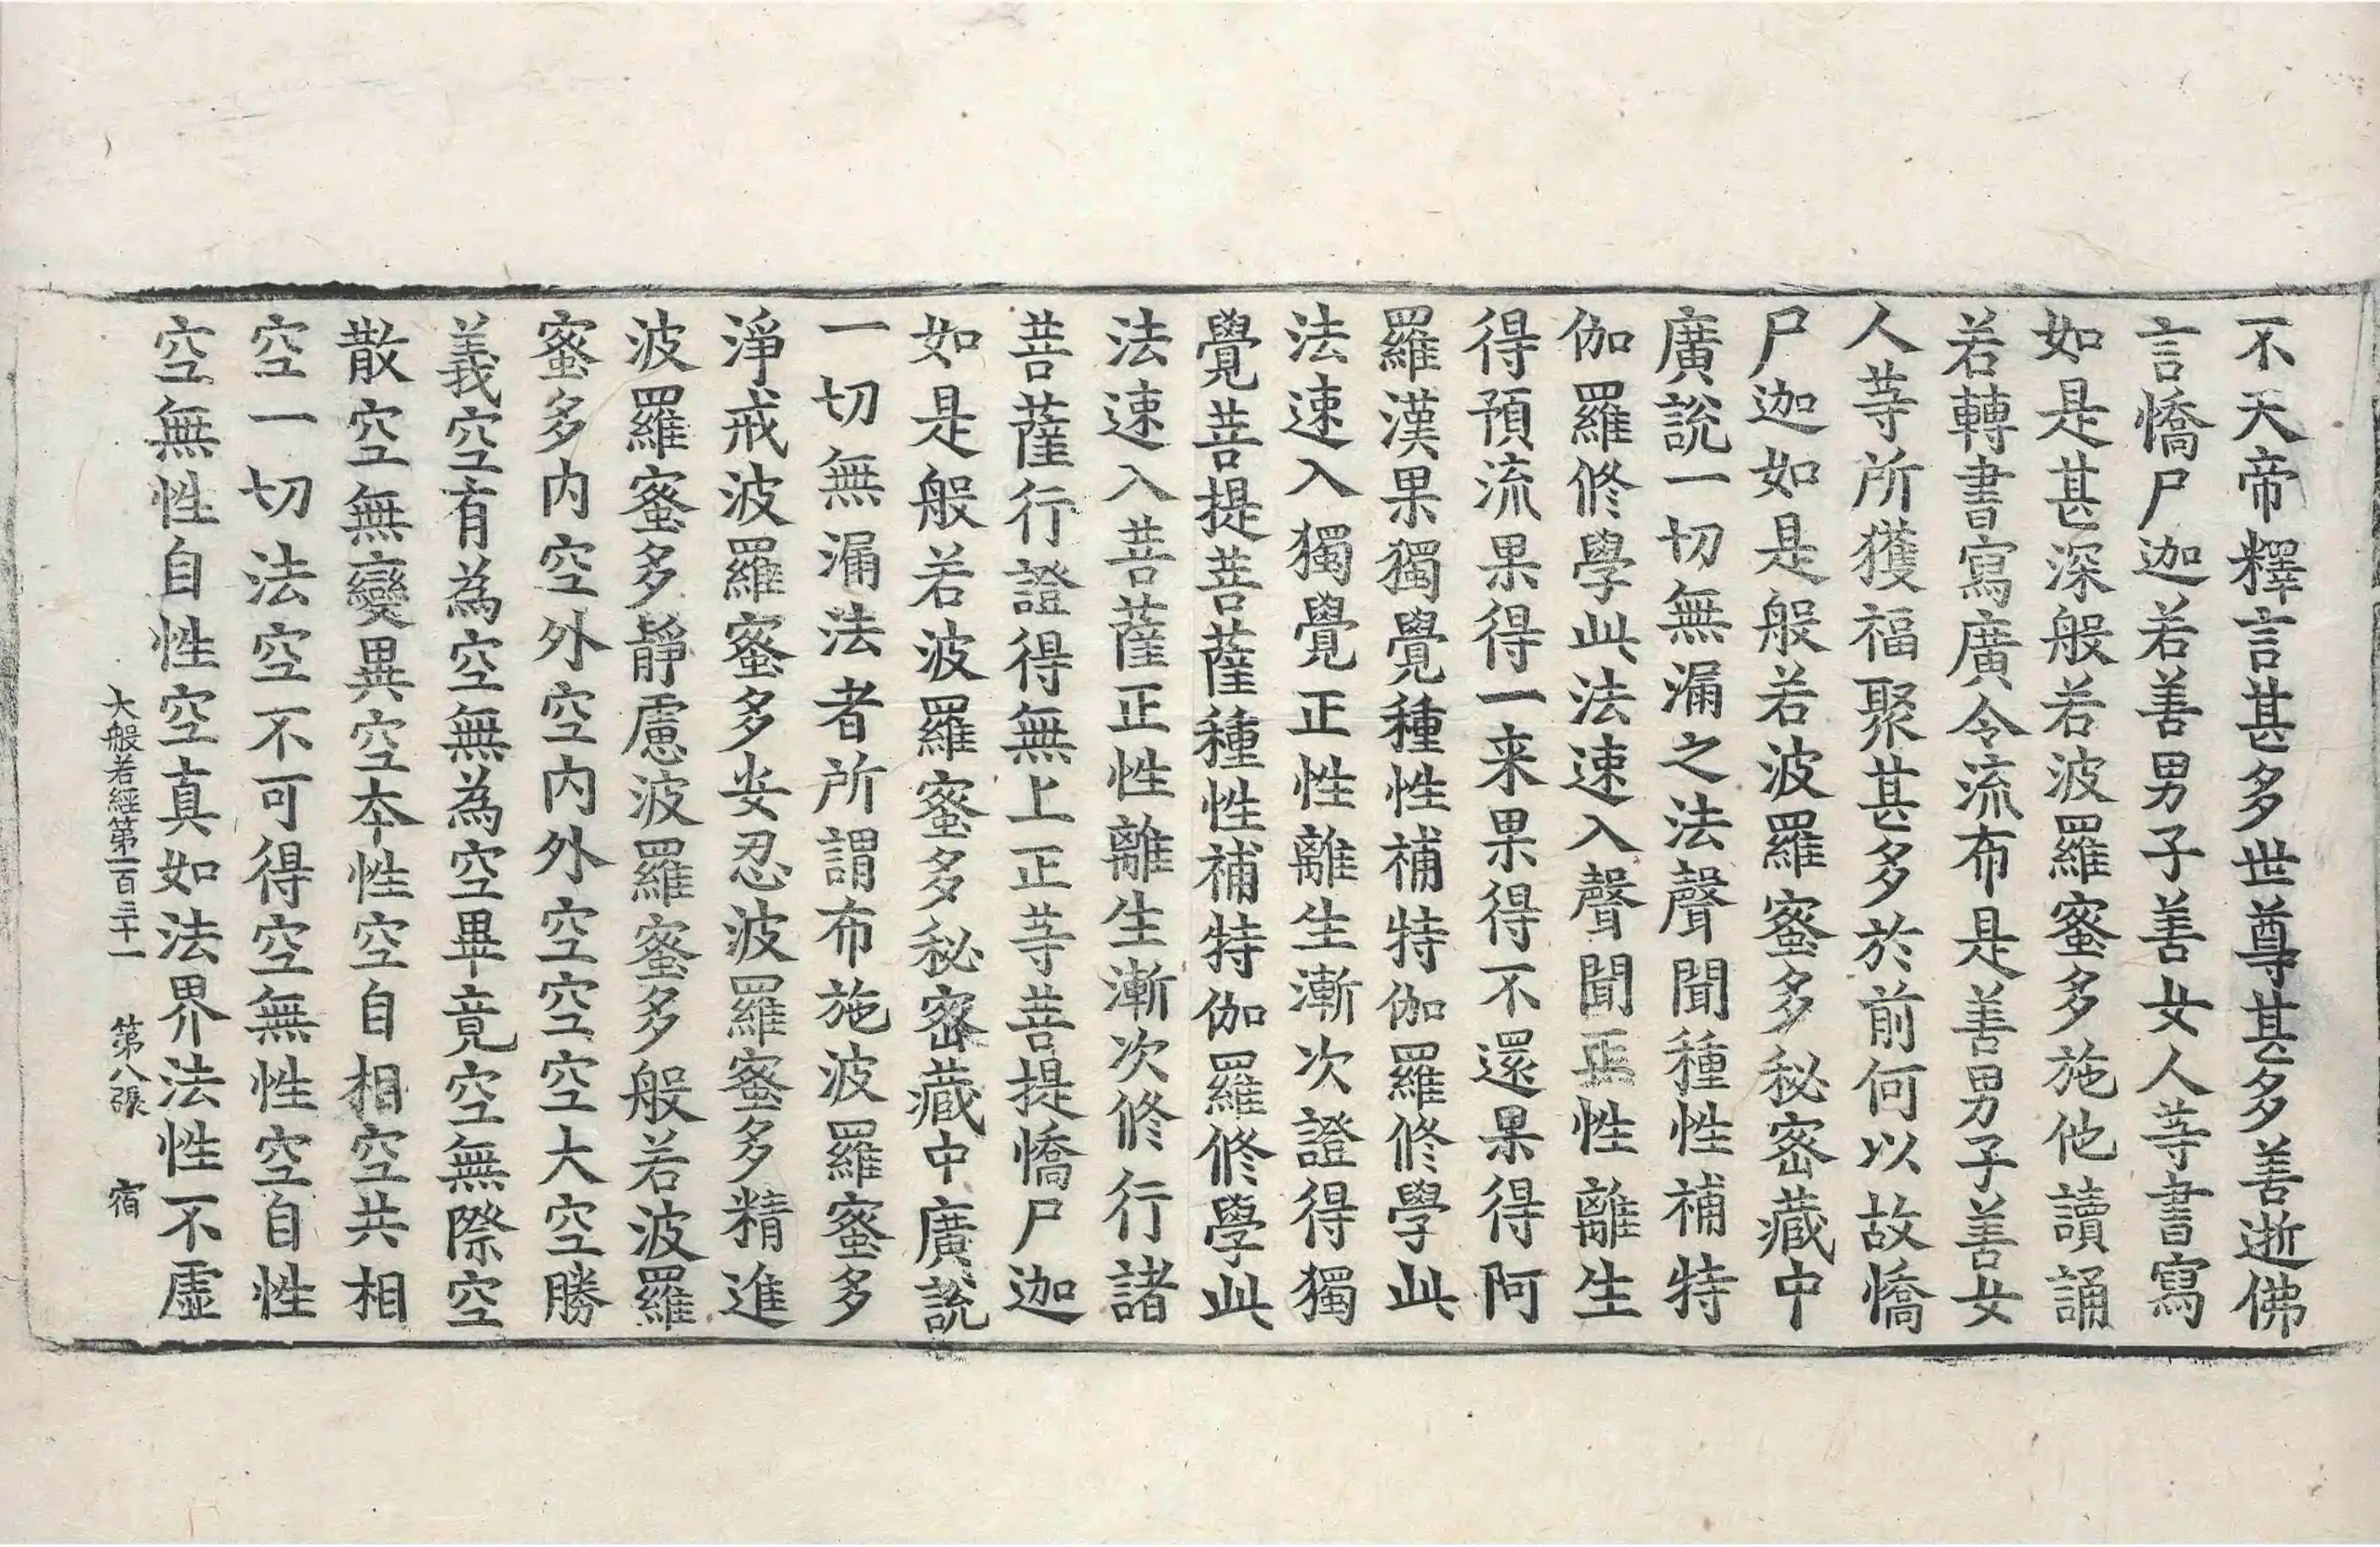 不天帝釋言甚多世尊甚多善逝佛
言憍尸迦若善男子善女人等書寫
如是甚深般若波羅蜜多施他讀誦
若轉書寫廣令流布是善男子善女
人等所獲福聚甚多於前何以故憍
尸迦如是般若波羅蜜多秘密藏中
廣說一切無漏之法聲聞種性補特
伽羅修學此法速入聲聞正性離生
得預流果得一来果得不還果得阿
羅漢果獨覺種性補特伽羅修學此
法速入獨覺正性離生漸次證得獨
覺菩提菩薩種性補特伽羅修學此
法速入菩薩正性離生漸次修行諸
菩薩行證得無上正等菩提憍尸迦
如是般若波羅蜜多秘密藏中廣說
一切無漏法者所謂布施波羅蜜多
淨戒波羅蜜多安忍波羅蜜多精進
波羅蜜多靜慮波羅蜜多般若波羅
蜜多内空外空内外空空空大空勝
義空有為空無為空畢竟空無際空
散空無變異空本性空自相空共相
空一切法空不可得空無性空自性
空無性自性空真如法界法性不虛
大般若經第一百三十一 第八張 宿